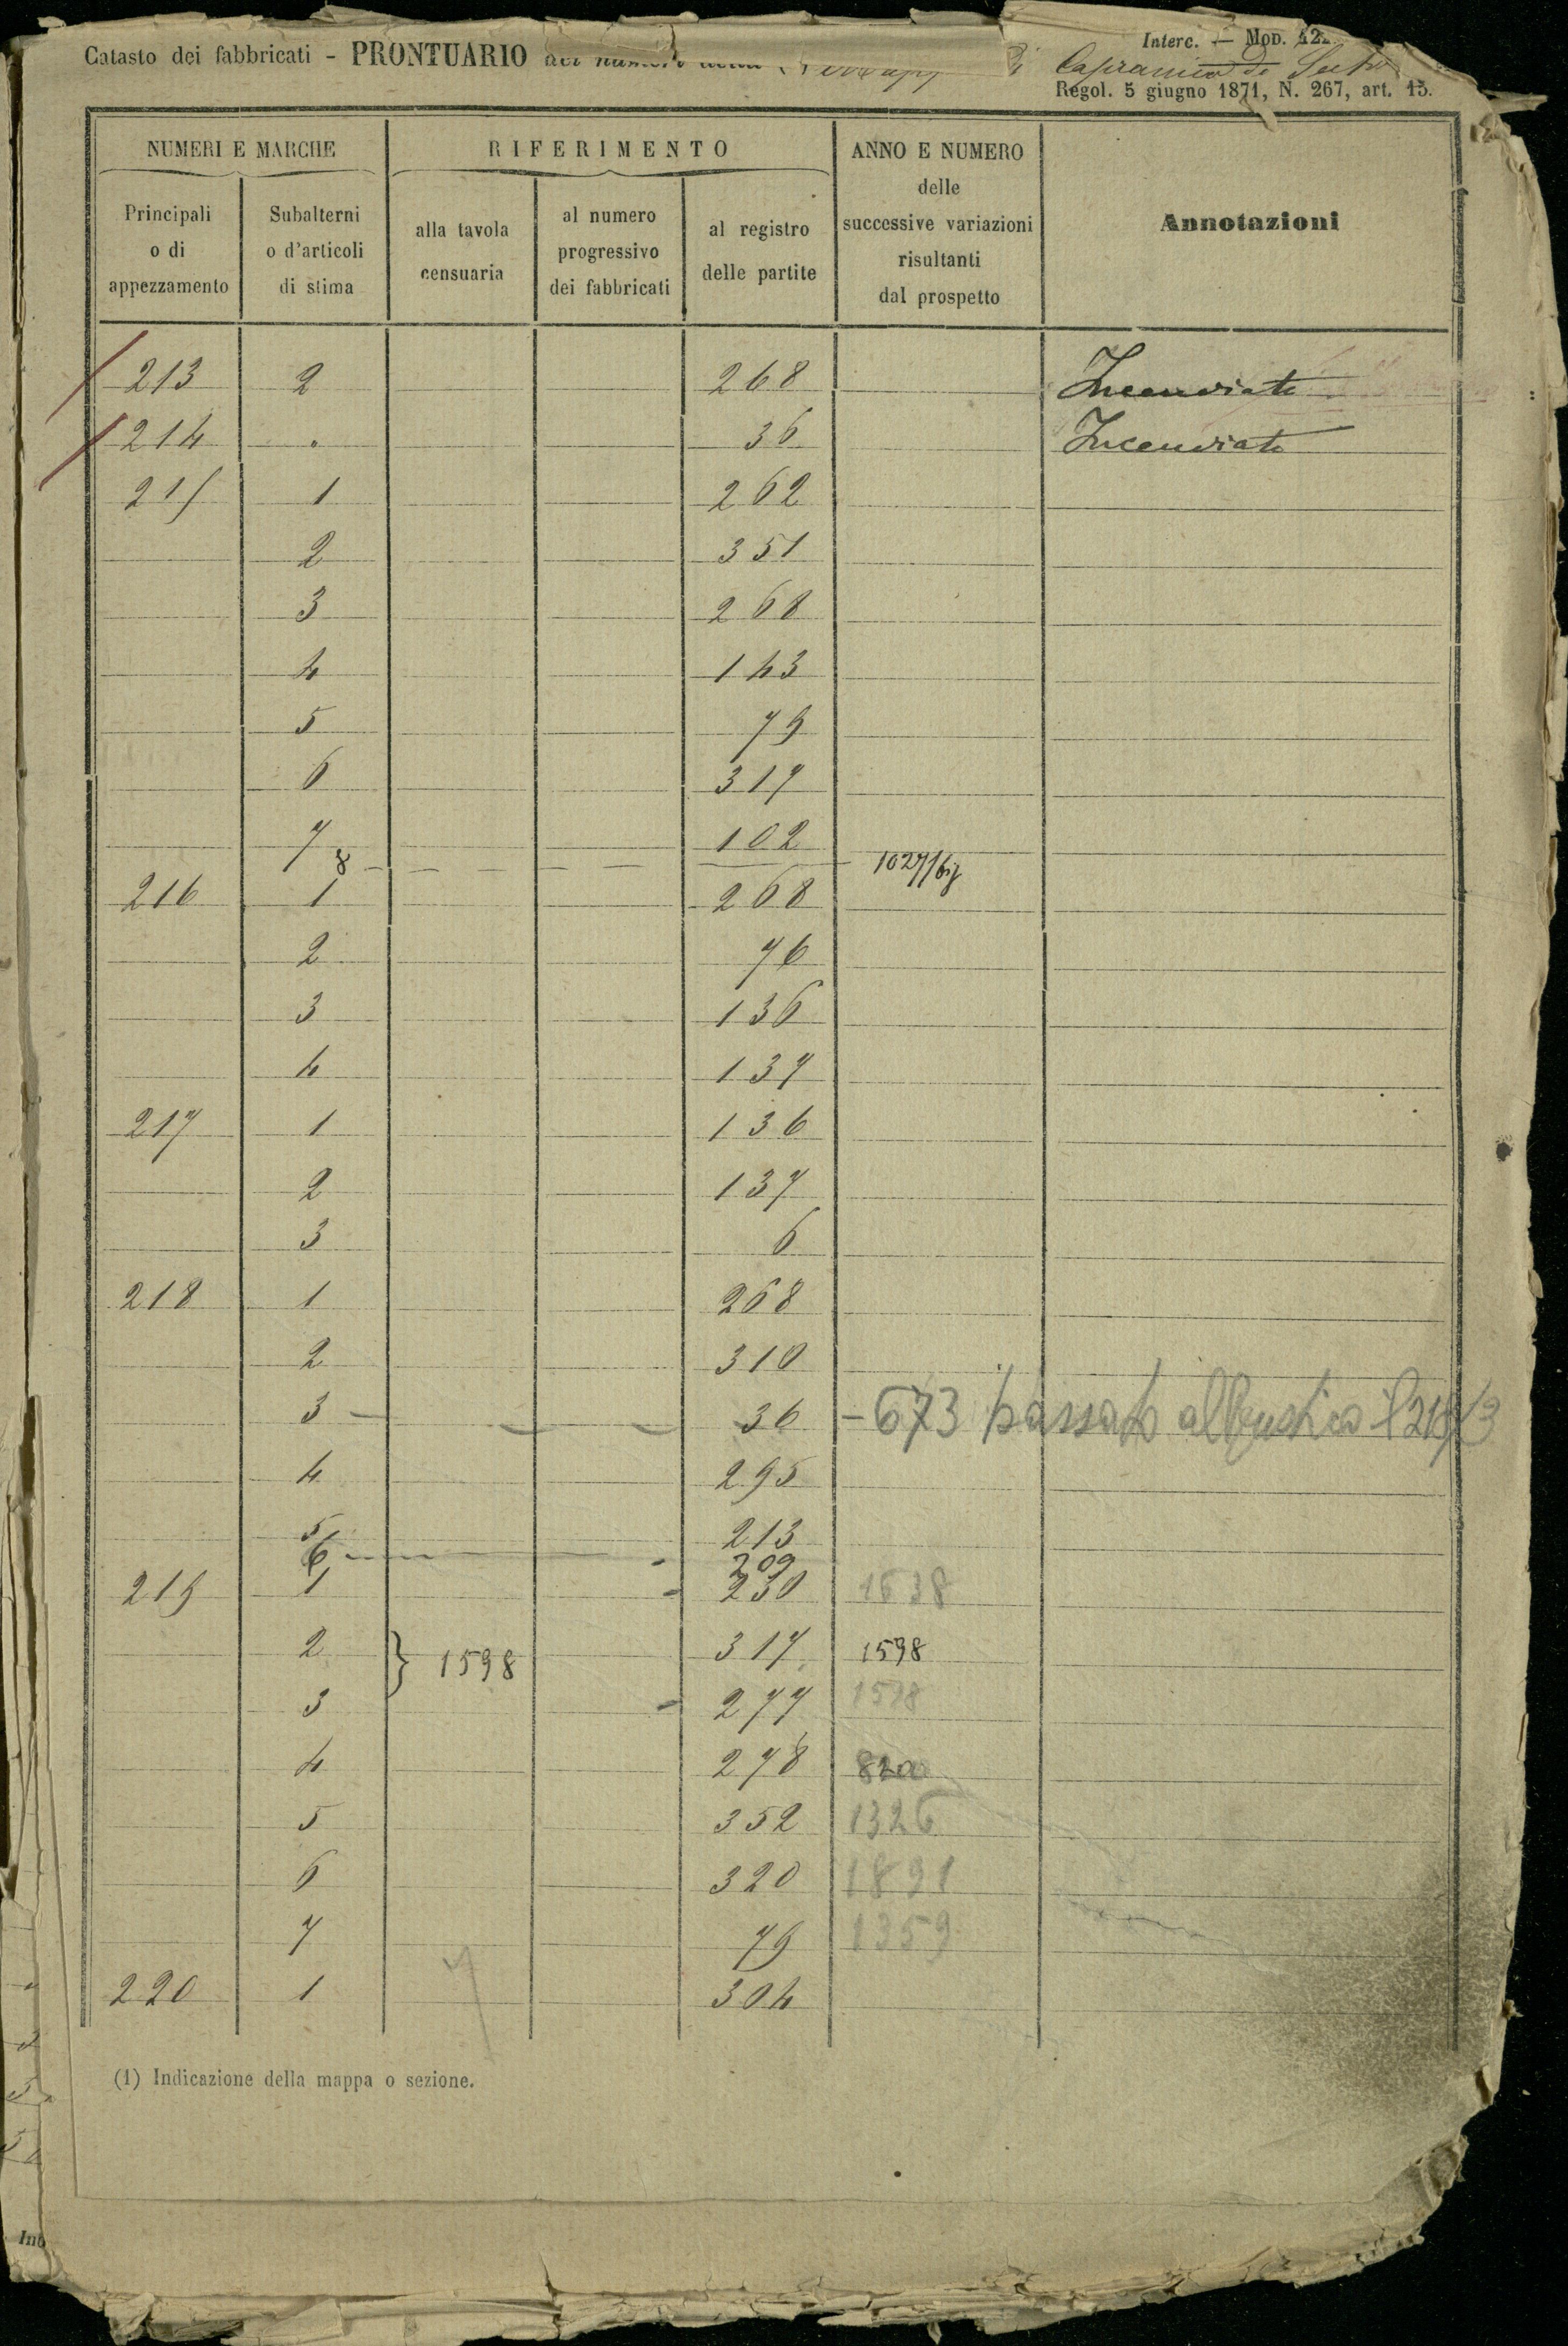 Interc. — Mod. 
Catasto dei fabbricati - PRONTUARIO dei numeri della di Capranica di Sutri
Regol. 5 giugno 1871, N. 267, art. 15.
NUMERI E MARCHE RIFERIMENTO ANNO E NUMERO delle successive variazioni risultanti dal prospetto Annotazioni
Principali o di appezzamento Subalterni o d'articoli di stima alla tavola censuaria al numero progressivo dei fabbricati al registro delle partite
213 2 268 Incendiato
214 . 36 Incendiato
215 1 262
2 351
3 268
4 143
5 79
6 317
7 102
8 1027/big
216 1 268
2 76
3 136
4 137
217 1 136
2 137
3 6
218 1 268
2 310
3 36 - 673 passato al Rustico il 218/3
4 295
5 213
6 209
219 1 230 1638
2 } 1598 317 1598
3 277 1598
4 278 820
5 352 1326
6 320 1891
7 79 1359
220 1 304
7
(1) Indicazione della mappa o sezione.